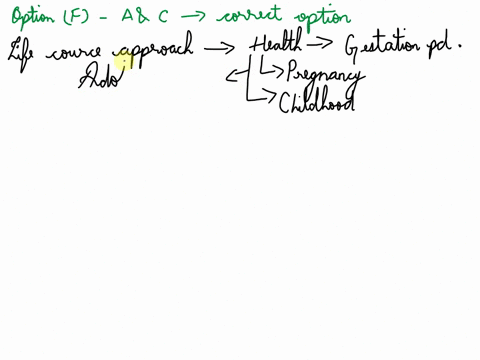 Option (F) - A & C → correct option
Life cource approach → Health → Gestation pd.
Ado ← → Pregnancy
→ Childhood